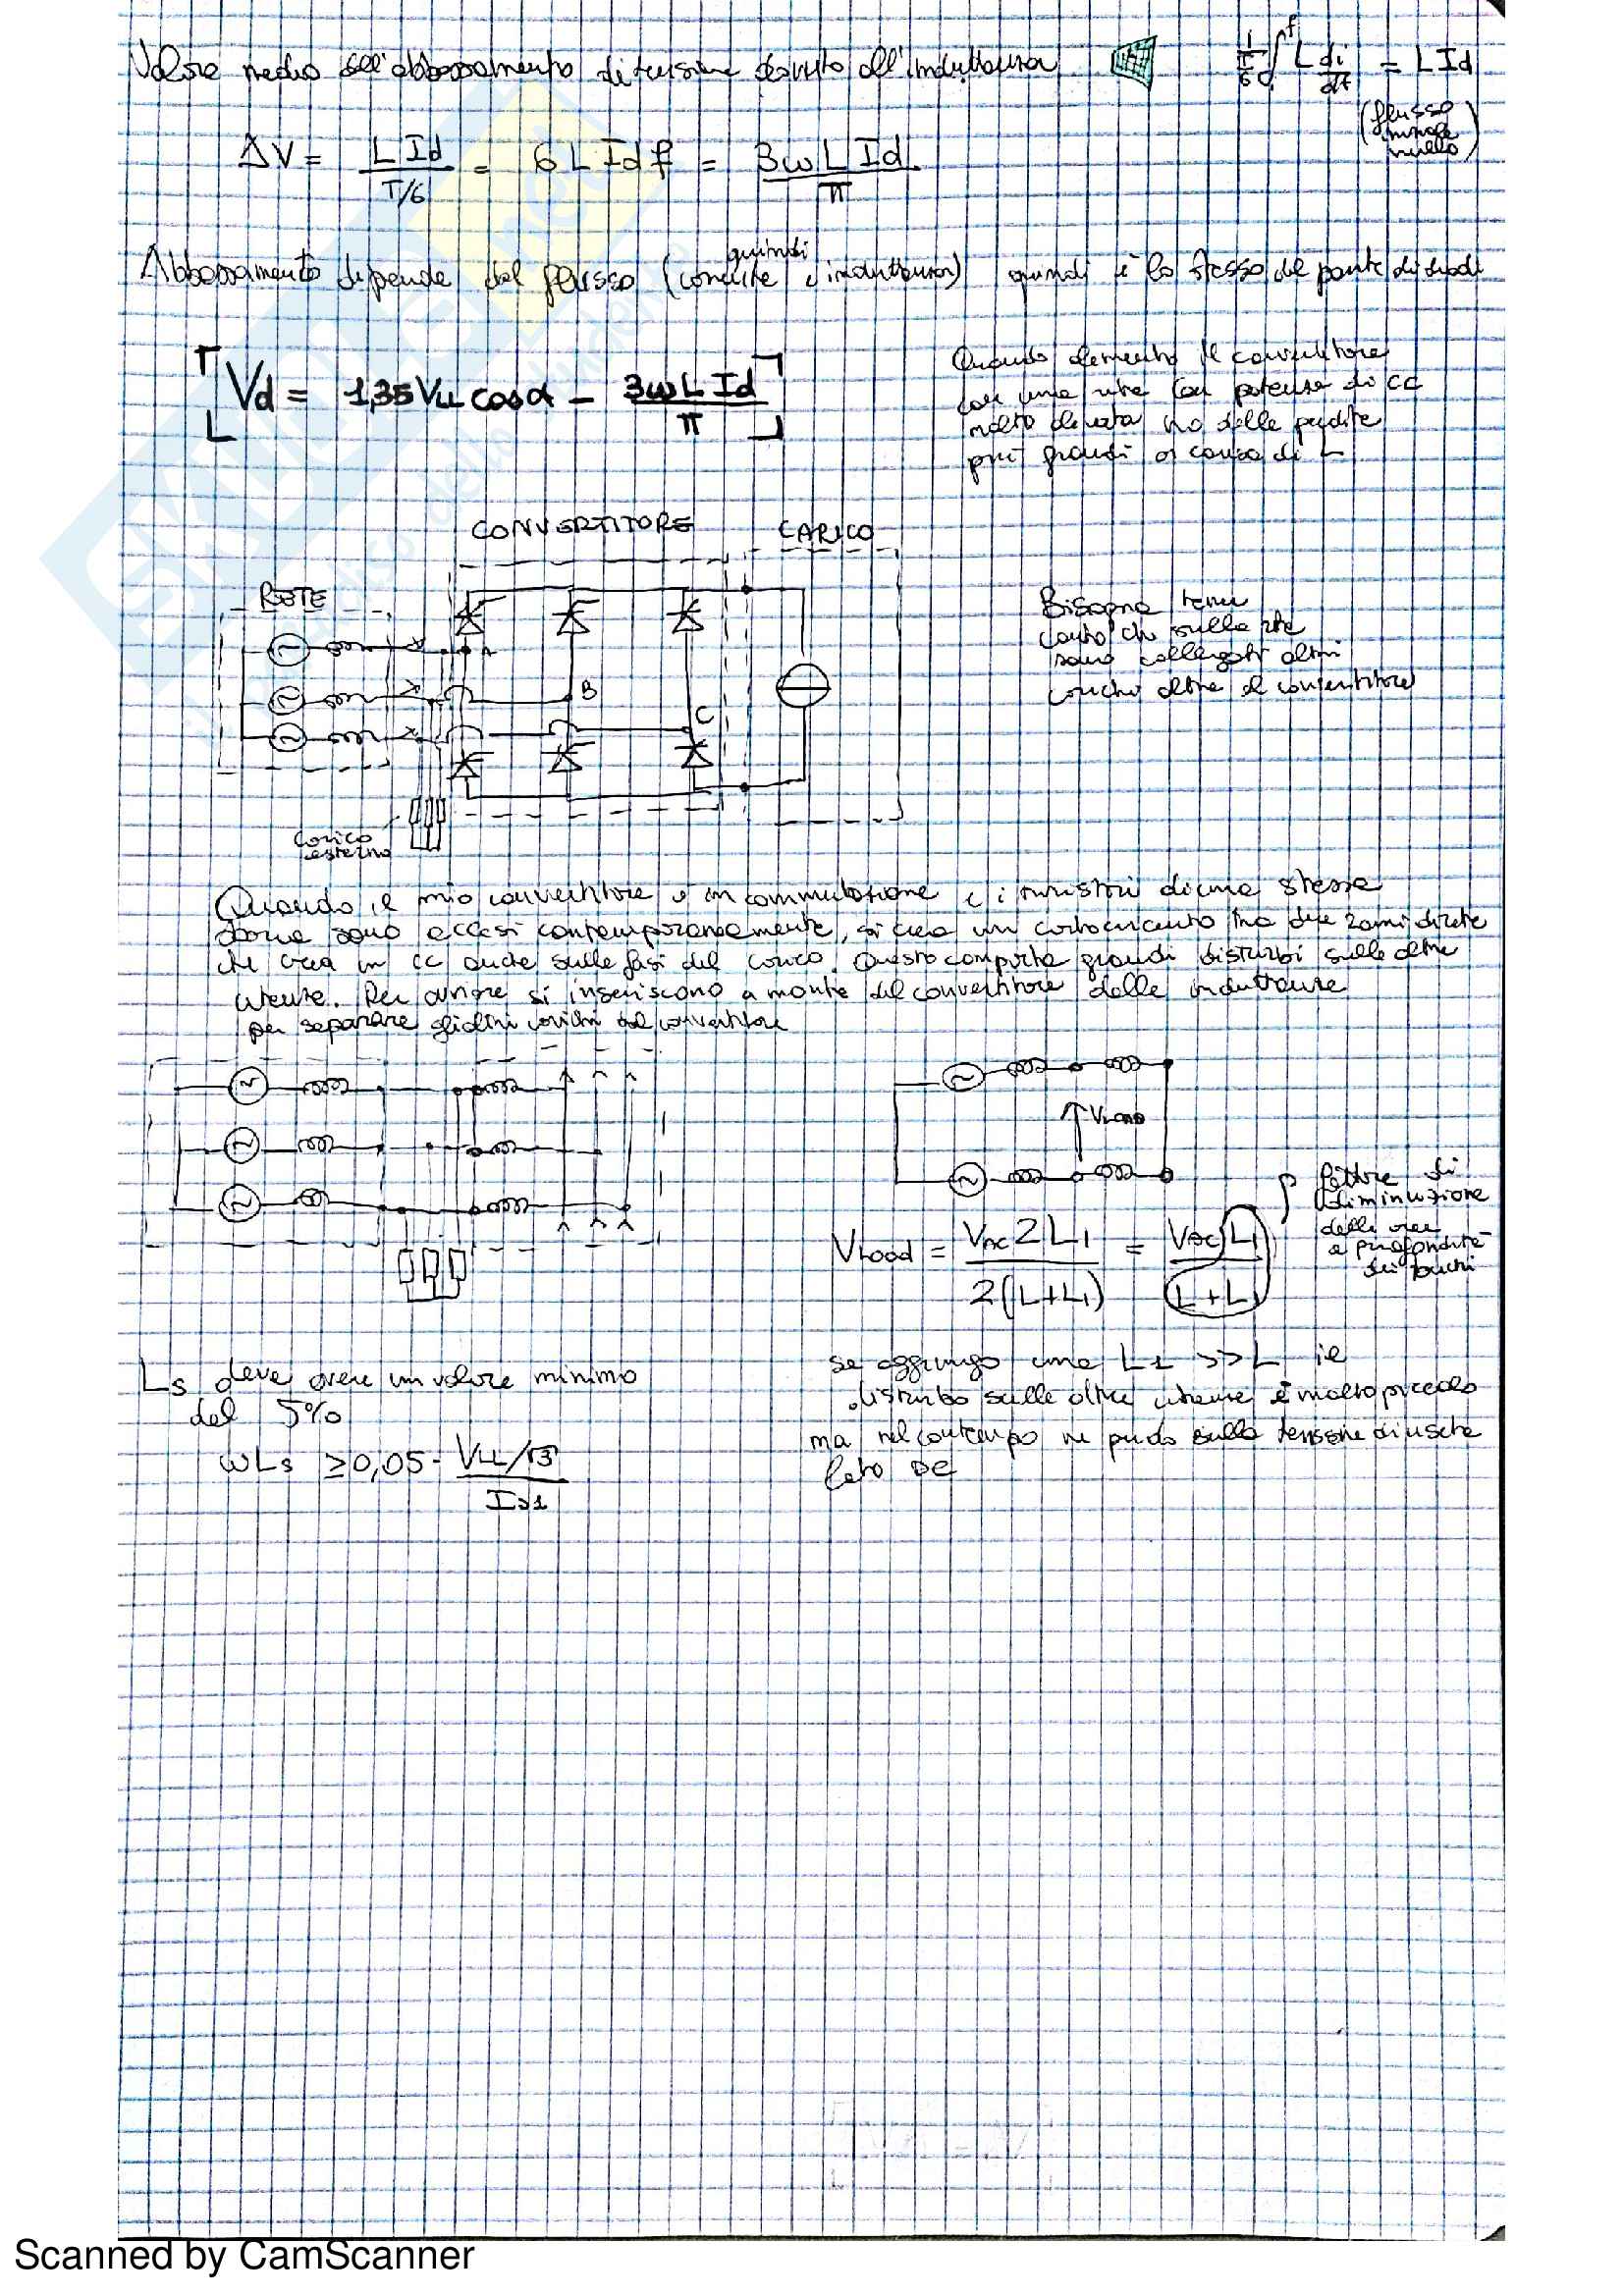 Valore medio dell'abbassamento di tensione dovuto all'induttanza
1/(π/6) ∫ L di/dt = L Id
(flusso iniziale nullo)
ΔV = L Id / T/6 = 6 L Id f = 3ωL Id / π
quindi
Abbassamento dipende dal flusso (corrente e induttanza) quindi è lo stesso del ponte di diodi
Vd = 1,35 VLL cosα − 3ωL Id / π
Quando alimento il convertitore
con una rete con potenza di cc
molto elevata ho delle perdite
più grandi a causa di L
CONVERTITORE
CARICO
RETE
A
B
C
Carico
esterno
Bisogna tener
conto che sulla rete
sono collegati altri
carichi oltre al convertitore
Quando il mio convertitore è in commutazione e i tiristori di una stessa
sono accesi contemporaneamente, si crea un cortocircuito tra due rami
che crea un cc anche sulle fasi del carico. Questo comporta grandi disturbi sulle altre
utenze. Per ovviare si inseriscono a monte del convertitore delle induttanze
per separare gli altri carichi dal convertitore
VLOAD
VLoad = VAC 2L1 / 2(L+L1) = VAC L1 / L+L1
fattore di
diminuzione
della
e profondità
dei buchi
Ls deve avere un valore minimo
del 5%
ωLs ≥ 0,05 · VLL/√3 / Is1
se aggiungo una L1 >> L il
disturbo sulle altre utenze è molto piccolo
ma nel contempo ne perdo sulla tensione di uscita
lato DC
Scanned by CamScanner